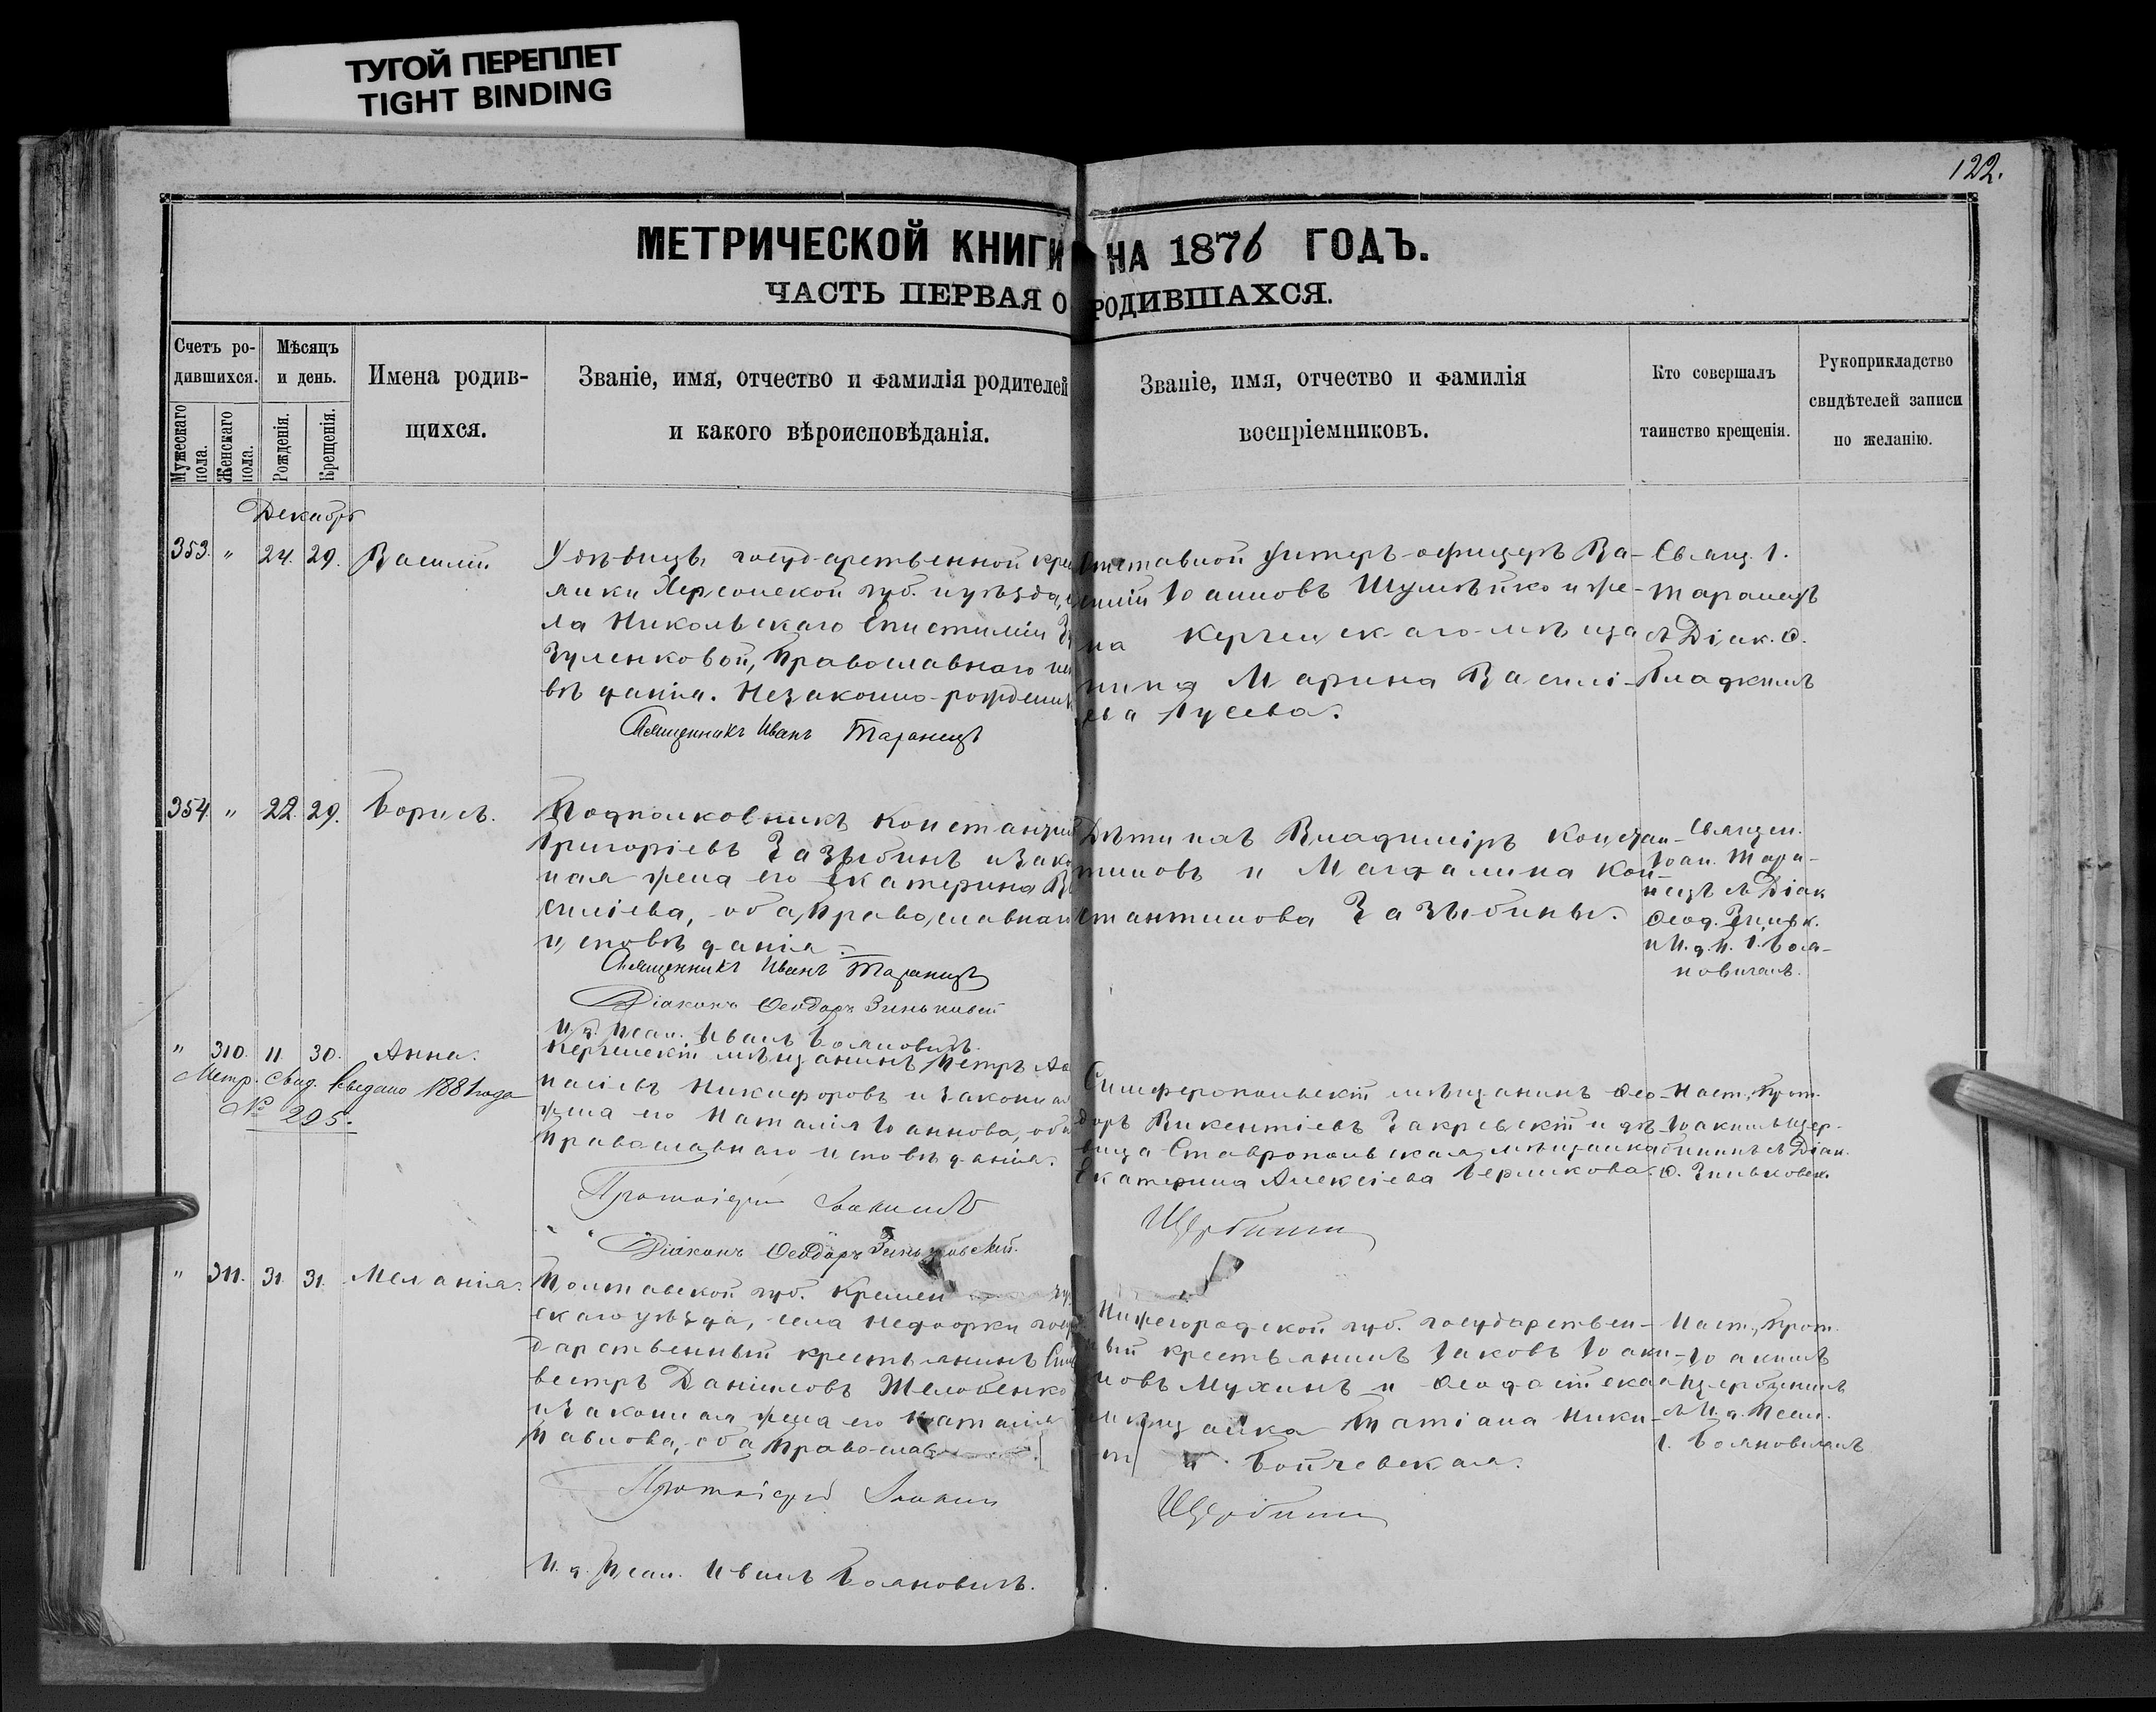 ТУГОЙ ПЕРЕПЛЕТ
TIGHT BINDING
122.
МЕТРИЧЕСКОЙ КНИГИ НА 1876 ГОДЪ.
ЧАСТЬ ПЕРВАЯ О РОДИВШАХСЯ.
Счетъ ро-
дившихся.
Мужескаго пола.
Женскаго пола.
Мѣсяцъ
и день.
Рожденія.
Крещенія.
Имена родив-
шихся.
Званіе, имя, отчество и фамилія родителей
и какого вѣроисповѣданія.
Званіе, имя, отчество и фамилія
воспріемниковъ.
Кто совершалъ
таинство крещенія.
Рукоприкладство
свидѣтелей записи
по желанію.
Декабрь
353. " 24. 29. Василій
государственной
Херсонской губ. и уѣзда,
ла Никольскаго Епистиміи
Зуленковой, Православнаго
вѣданія. Незаконно-рожденный
Священникъ Иванъ Таранецъ
Отставной Унтеръ-офицеръ Ва-
силій Іоанновъ Шумѣйко и же-
на Керченскаго мѣща-
нина Марина Василі-
ева Гусева.
Свящ. І.
Таранецъ
съ Діак. Ѳ.
354. " 22. 29. Борисъ.
Подполковникъ Константинъ
Григоріевъ Зазыбинъ и зако
ная жена его Екатерина Ва
силіева, оба Православнаго
исповѣданія.
Священникъ Иванъ Таранецъ
Діаконъ Ѳеодоръ Зиньковскій
И. д. Псал. Иванъ Бояновичъ.
Владиміръ Констан-
тиновъ и Магдалина Кон-
стантинова Зазыбины.
Священ.
Іоан. Тара-
нецъ съ Діак
Ѳеод. Зиньк.
и И. д. П. І. Боя-
новичемъ.
" 310. 11. 30. Анна.
Метр. Свид. выдано 1881 года
№ 295.
Керченскій мѣщанинъ Петръ
Никифоровъ и законная
жена его Наталія Іоаннова, оба
Православнаго исповѣданія.
Протоіерей Іоакимъ
Діаконъ Ѳеодоръ Зиньковскій.
Симферопольскій мѣщанинъ Ѳео-
доръ Викентіевъ Закревскій и дѣ
вица Ставропольская мѣщанка
Екатерина Алексіева Берликова.
Щербининъ
Наст. Прот.
Іоакимъ Щер-
бининъ съ Діак.
Ѳ. Зиньковск.
" 311. 31. 31. Меланія.
Полтавской губ. Кремен
скаго уѣзда, села Недогорки госу
дарственный крестьянинъ Силь
вестръ Даниловъ Желобенко
и законная жена его Наталія
Павлова, оба Православ
Протоіерей Іоакимъ
И. д. Псал. Иванъ Бояновичъ.
Нижегородской губ. государствен-
ный крестьянинъ Іаковъ Іоаки-
мовъ Мухинъ и Ѳеодосійская
мѣщанка Татіана Ники-
Бойчевская.
Щербининъ
Наст. Прот.
Іоакимъ
Щербининъ
съ И. д. Псал.
І. Бояновичемъ